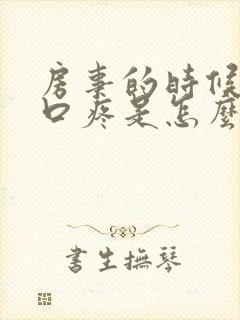 房事的時候
口疼是怎麼
書生撫琴